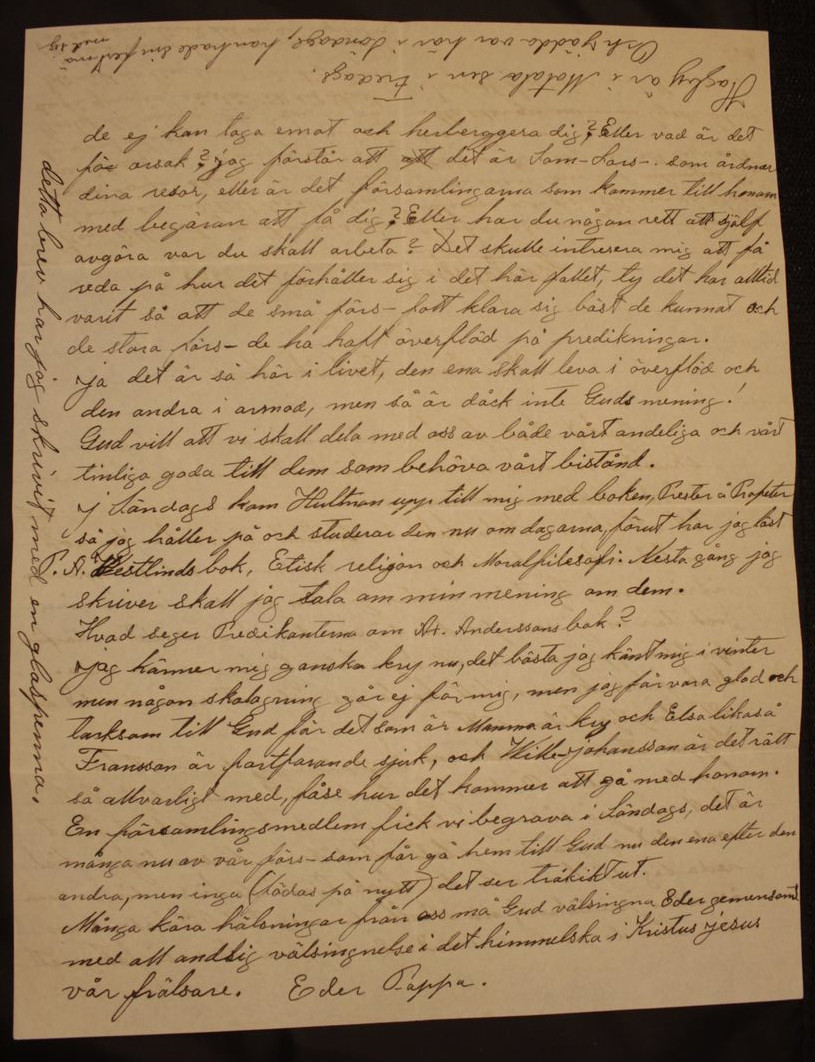 de ej kan taga emot och herberggera dig? Eller vad är det
för orsak? jag förstår att det är Sam-Fors-. som årdnar
dina resor, eller är det församlingarna som kommer till honom
med begäran att få dig? Eller har du någon rett att själf
avgöra var du skall arbeta? Det skulle intresera mig att få
veda på hur det förhåller sig i det här fallet, ty det har alltid
varit så att de små förs- fått klara sig bäst de kunnat och
de stora förs- de ha haft överflöd på predikningar.
ja det är så här i livet, den ena skall leva i överflöd och
den andra i armod, men så är dåck inte Guds mening!
Gud vill att vi skall dela med oss av både vårt andeliga och vårt
timliga goda till dem som behöva vårt bistånd.
j Söndags kom Hultman upp till mig med boken, Prester å Profeter
så jag håller på och studerar den nu om dagarna, förut har jag läst
P. A. Westlinds bok, Etisk religion och Moralfilosofi. Nesta gång jag
skriver skall jag tala om min mening om dem.
Hvad seger Predikanterna om Ax. Anderssons bok?
jag känner mig ganska kry nu, det bästa jag känt mig i vinter
men någon skolagning går ej för mig, men jag får vara glad och
tacksam till Gud för det som är Mamma är kry och Elsa likaså
Fransson är fortfarande sjuk, och Wille Johansson är det rätt
så allvarligt med, fåse hur det kommer att gå med honom.
En församlingsmedlem fick vi begrava i Söndags, det är
många nu av vår förs- som får gå hem till Gud nu den ena efter den
andra, men inga (födas på nytt) det ser tråkikt ut.
Många kära hälsningar från oss må Gud välsingna Eder gemensamt
med all andlig välsingnelse i det himmelska i Kristus jesus
vår frälsare. Eder Pappa.
detta brev har jag skrivit med en glaspenna.
Hagby är i Motala sen i Fredags.
Och Gädda var här i Söndags, han hade sin fästmö
med sig.